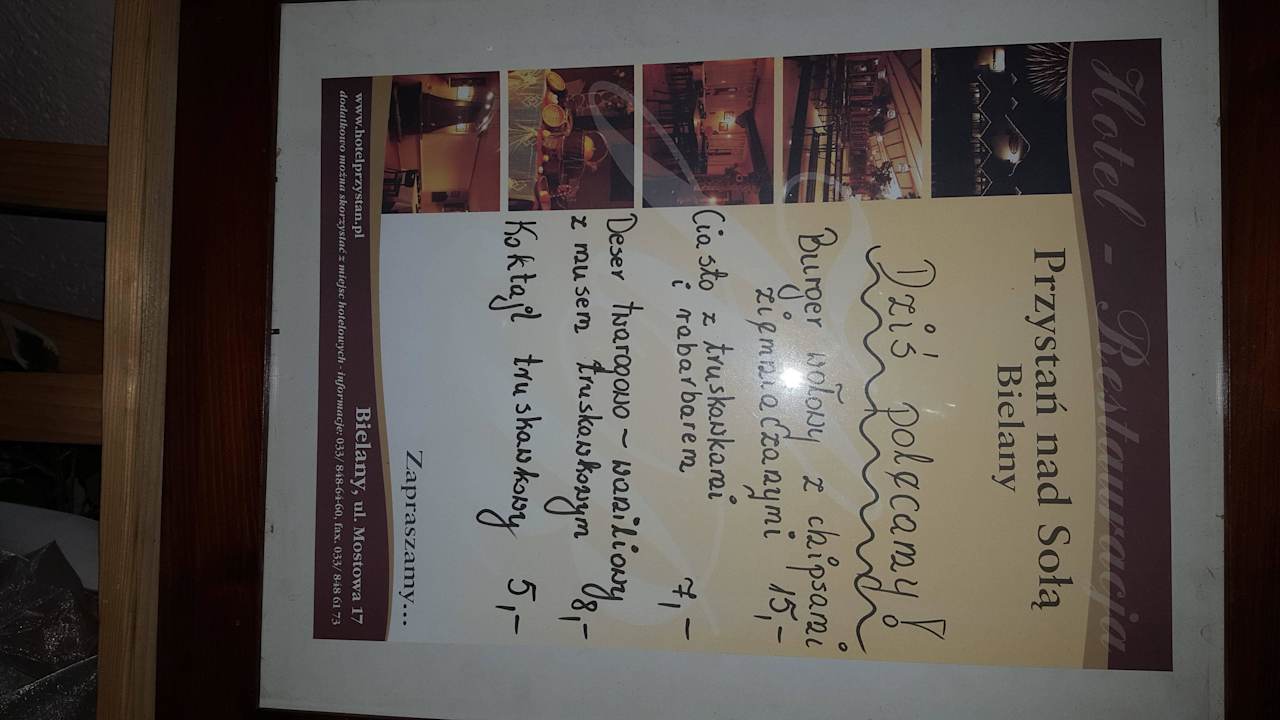 Hotel - Restauracja
Przystań nad Sołą
Bielany
Dziś polecamy!
Burger wołowy z chipsami
ziemniaczanymi 15,-
Ciasto z truskawkami
i rabarbarem 7,-
Deser twarogowo - waniliowy
z musem truskawkowym 8,-
Koktajl truskawkowy 5,-
Zapraszamy...
www.hotelprzystan.pl
Bielany, ul. Mostowa 17
dodatkowo można skorzystać z miejsc hotelowych - informacje: 033/ 848-64-60, fax. 033/ 848 61 73